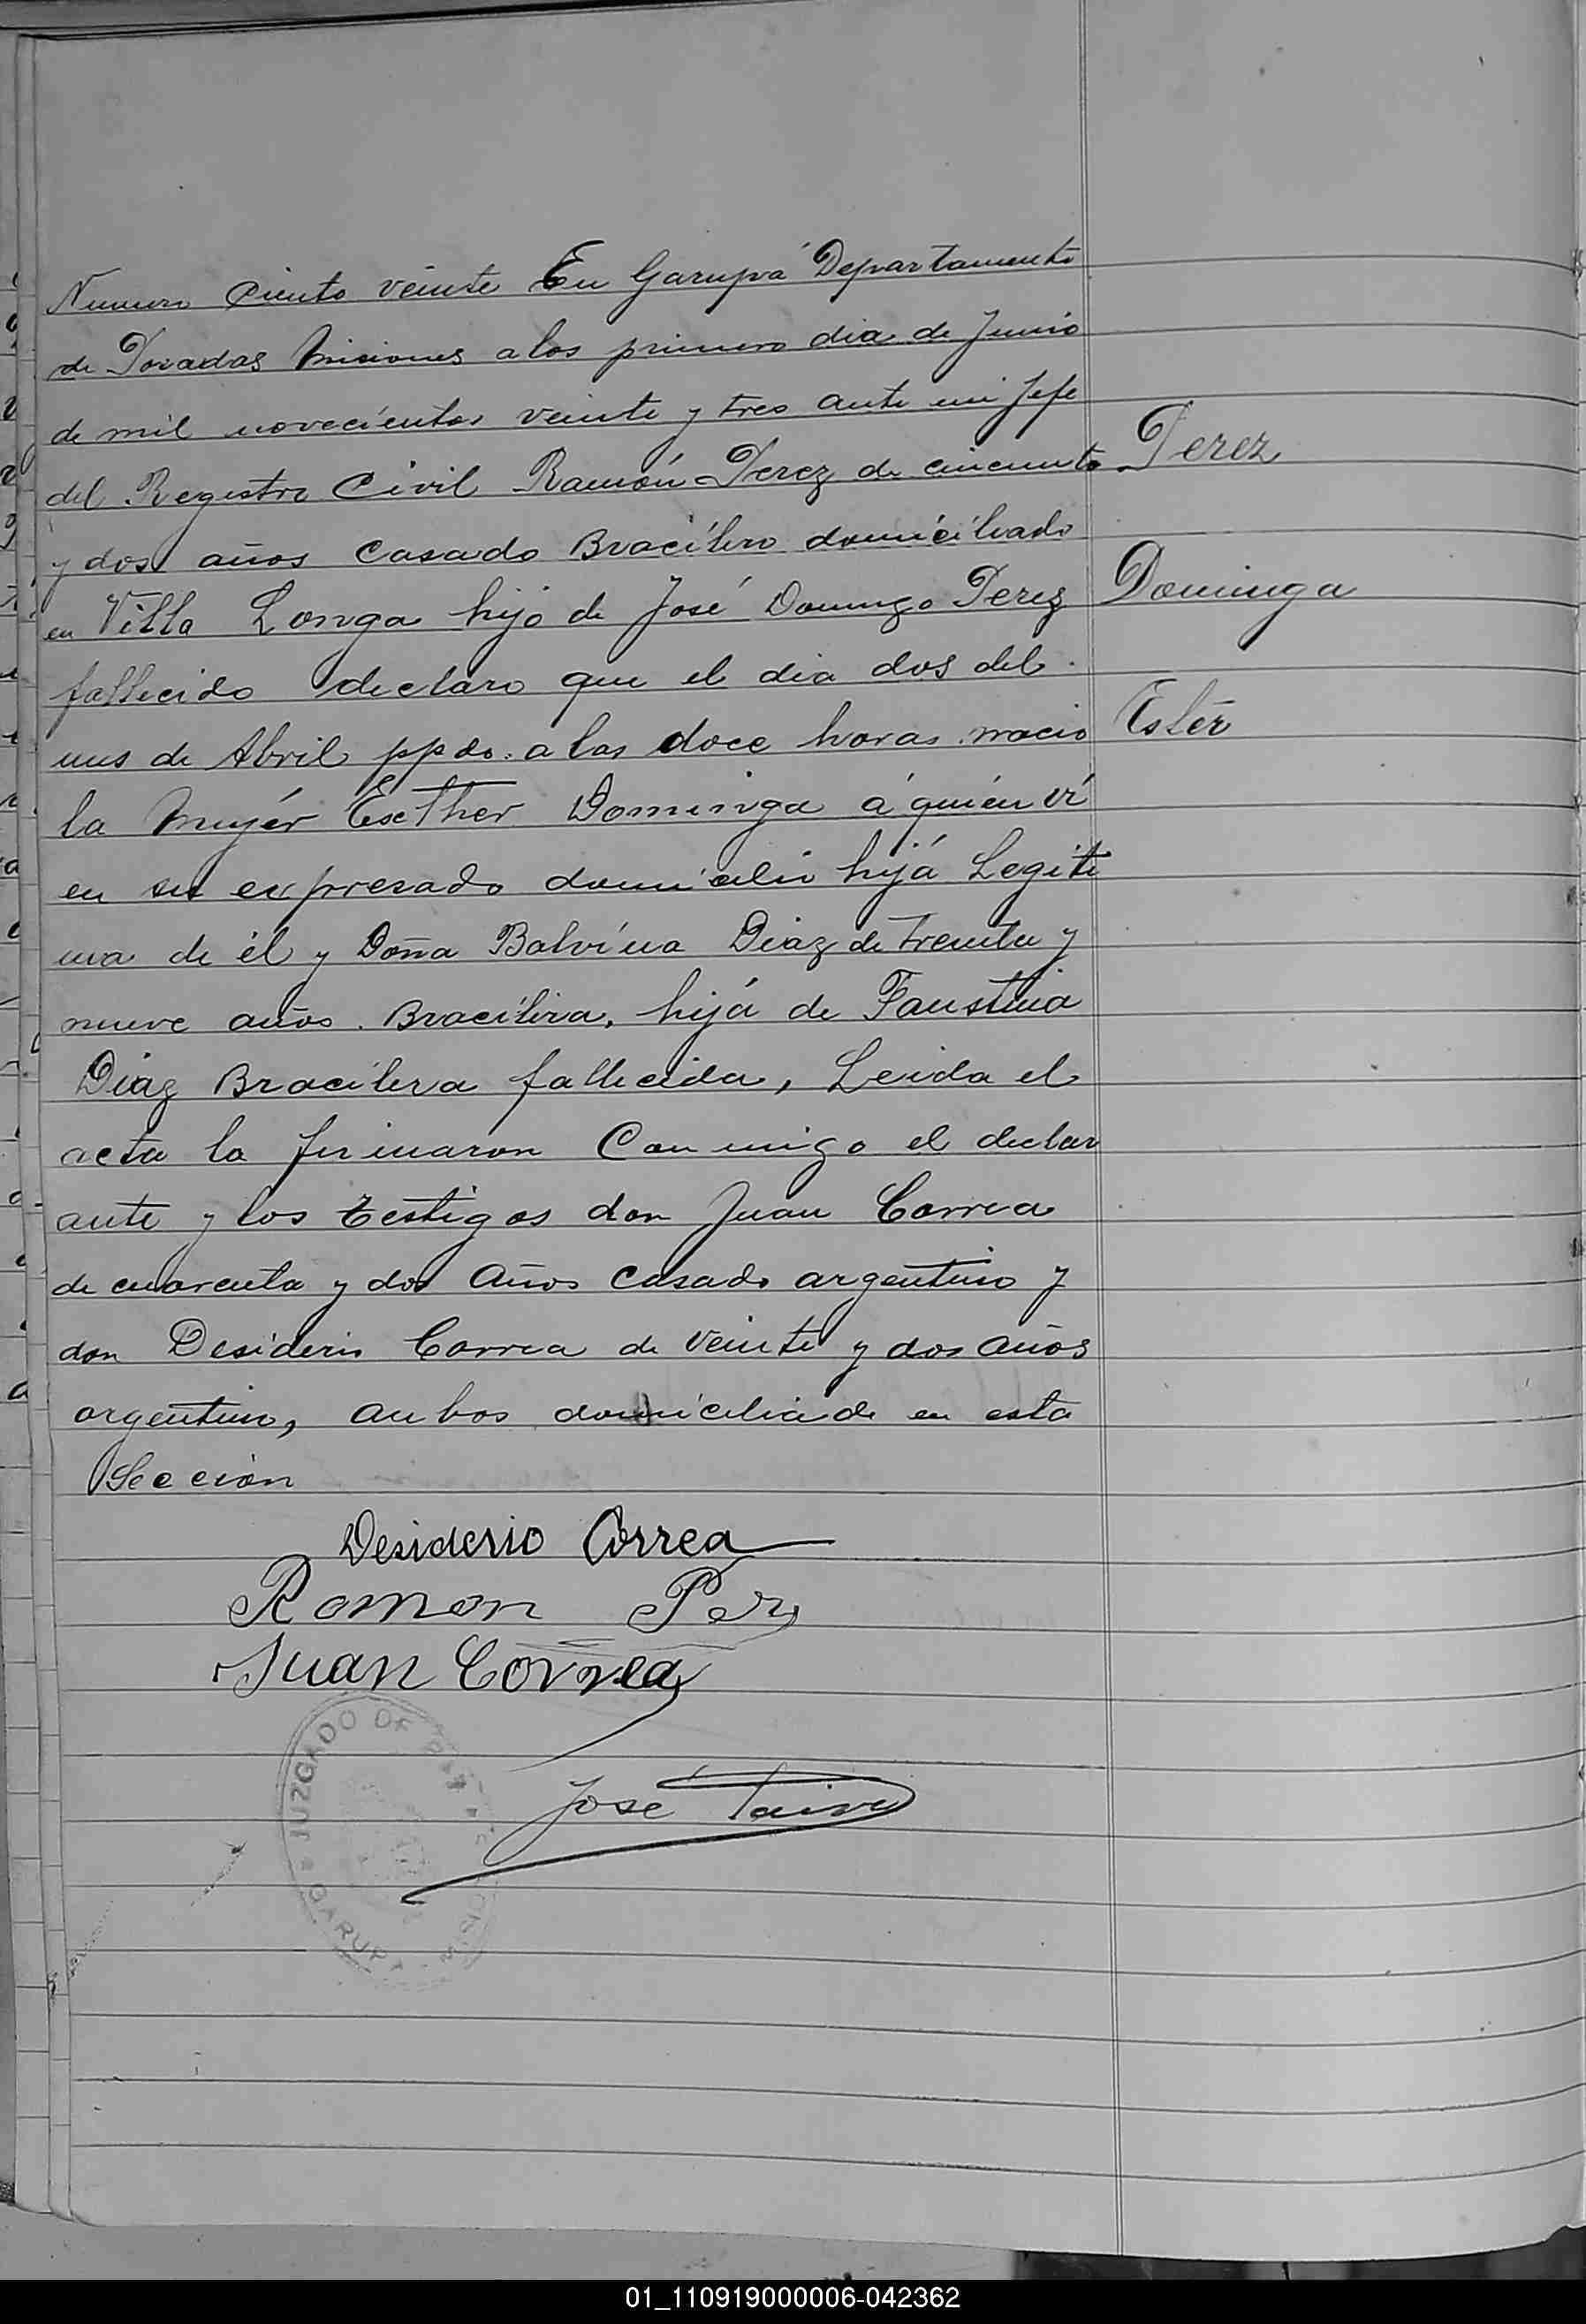 Numero Ciento veinte En Garupá Departamento
de Posadas Misiones a los primero dia de Junio
de mil novecientos veinte y tres ante mi Jefe
del Registro Civil Ramón Perez de cincuenta
y dos años Casado Bracilero domiciliado
en Villa Longa hijo de José Domingo Perez
fallecido declaro que el dia dos del
mes de Abril ppdo. a las doce horas nacio
la Mujér Esther Dominga á quién ví
en su expresado domicilio hijá Legiti
ma de él y Doña Balvína Diaz de treinta y
nueve años. Bracilira, hijá de Faustina
Diaz Bracilera fallecida, Leida el
acta la firmaron Conmigo el declar
ante y los testigos don Juan Correa
de cuarenta y dos años casado argentino y
don Desiderio Correa de veinte y dos años
argentino, ambos domiciliado en esta
Seccion
Perez
Dominga
Estér
Desiderio Correa
Ramon Perz
Juan Correa
José Paiva
JUZGADO DE PAZ
GARUPA
01_110919000006-042362